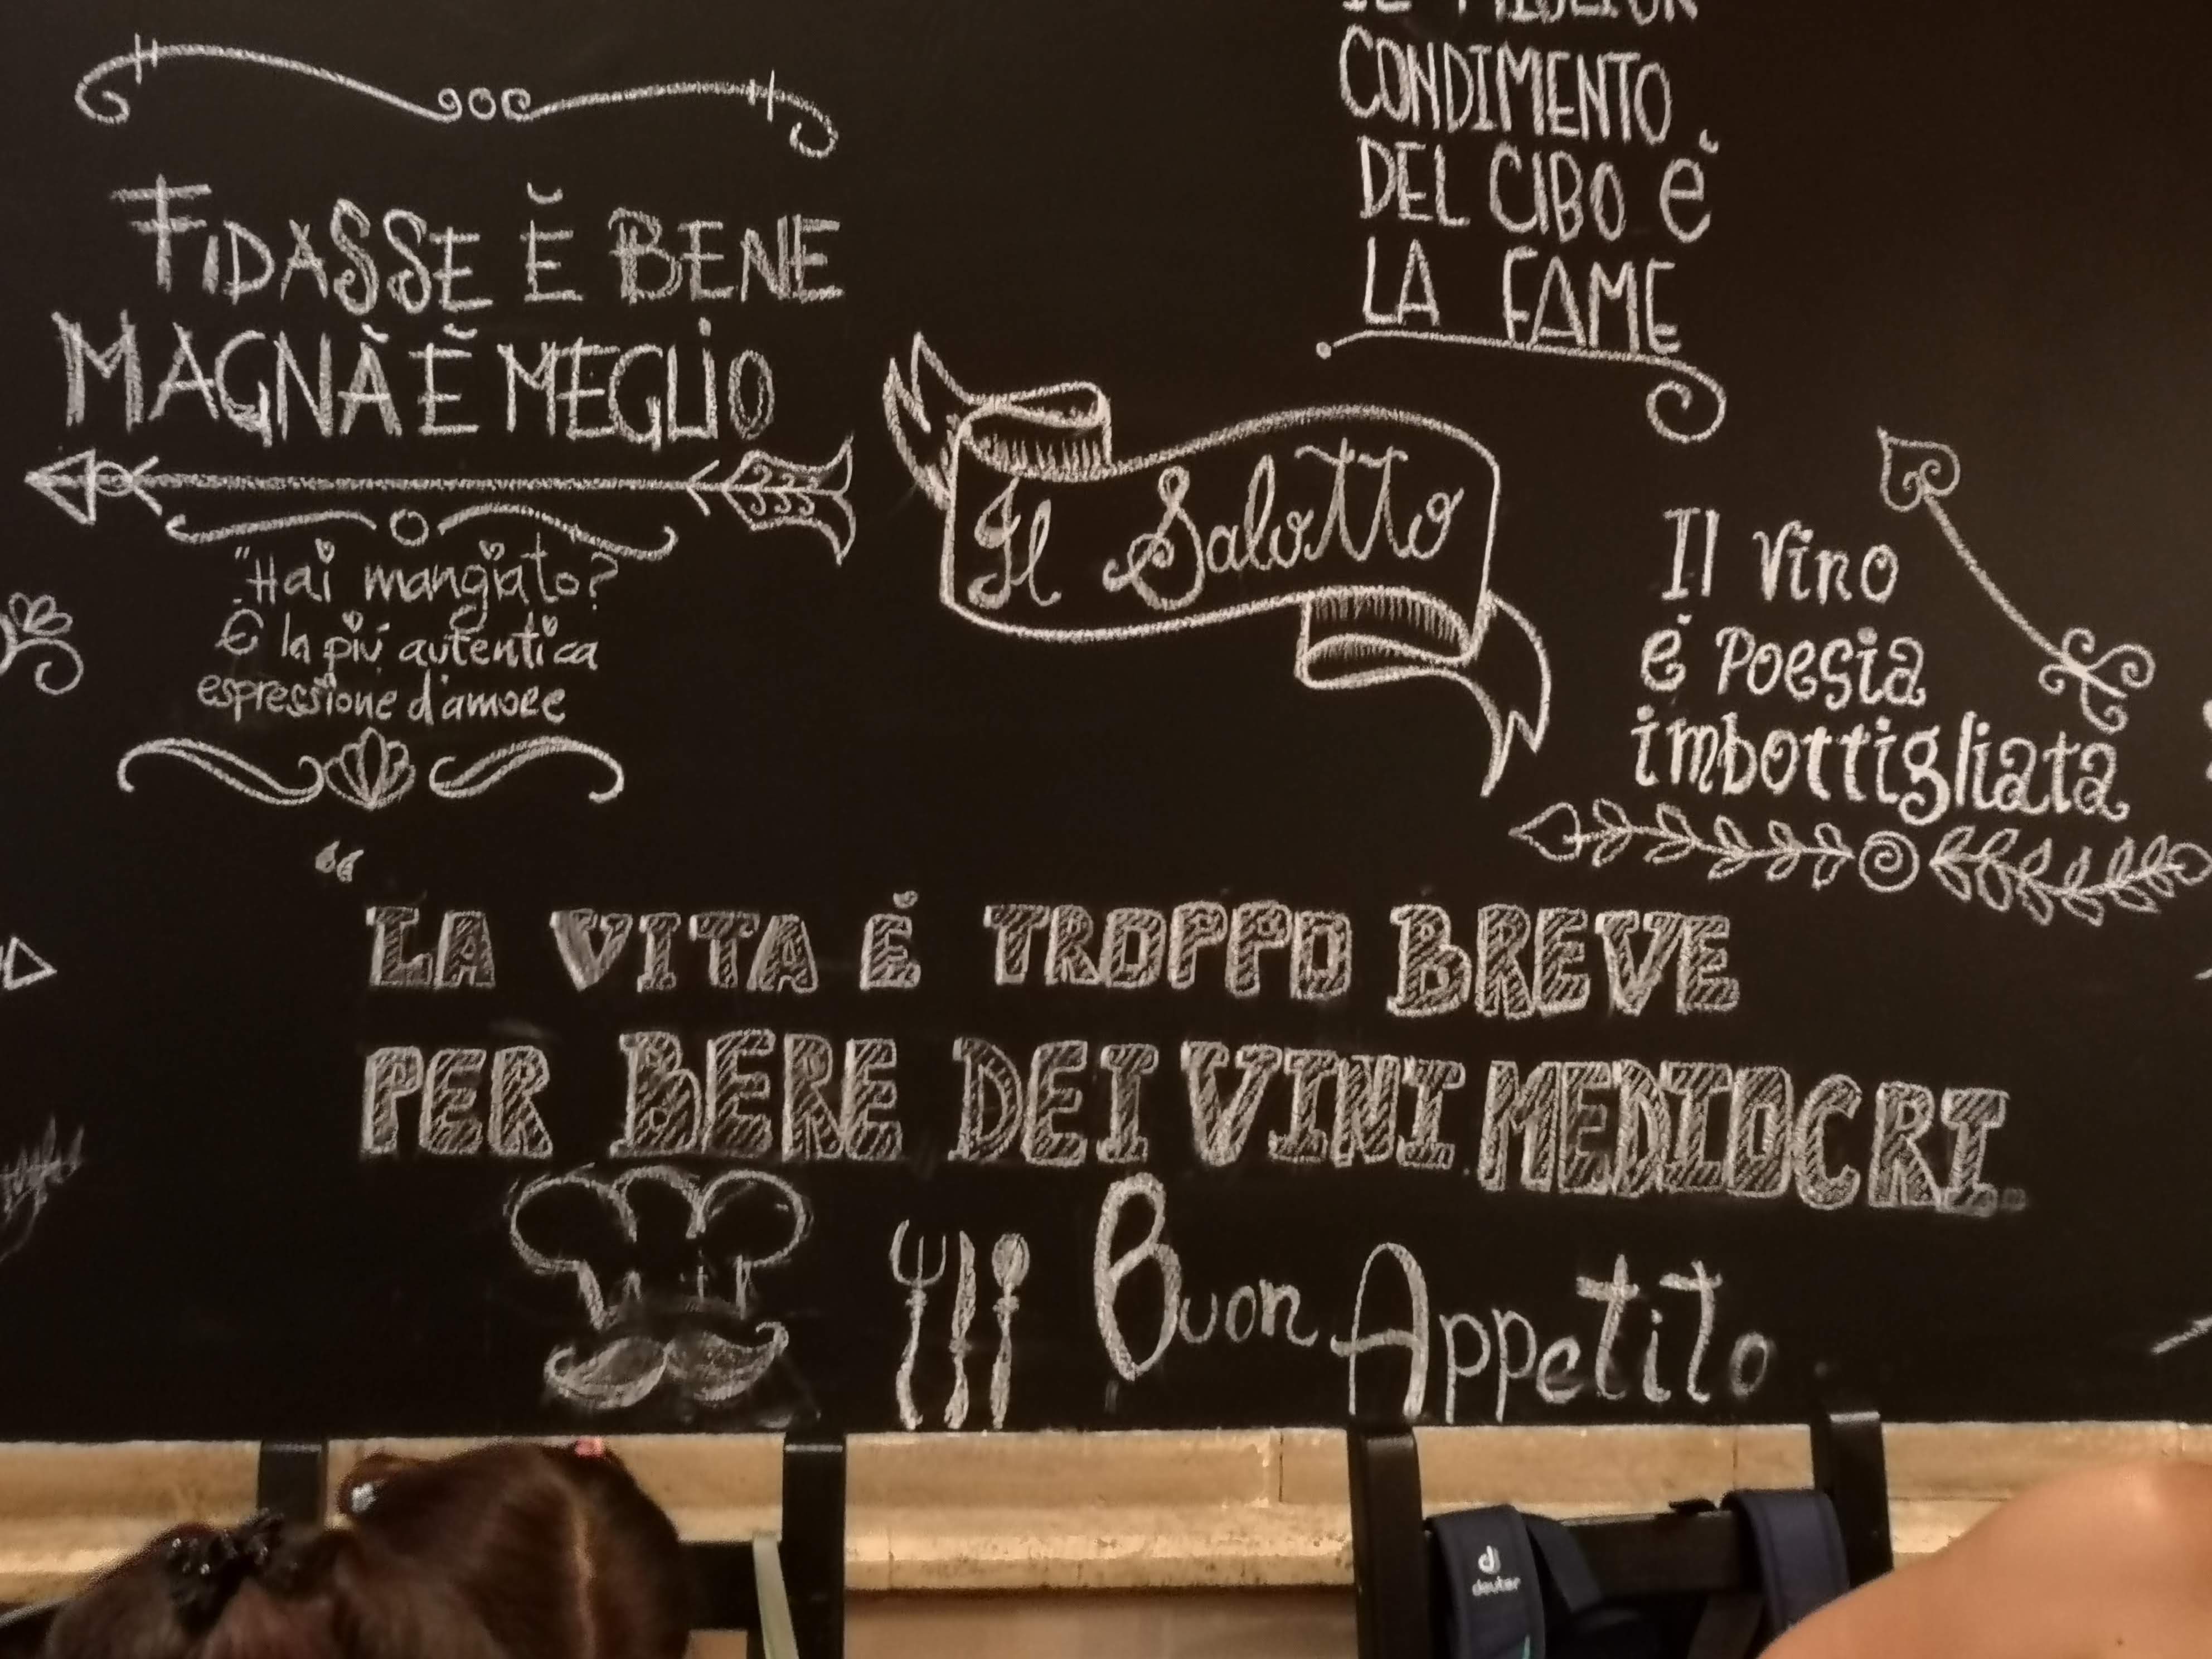 IL MIGLIOR
CONDIMENTO
DEL CIBO È
LA FAME
FIDASSE È BENE
MAGNÀ È MEGLIO
"Hai mangiato?
È la più autentica
espressione d'amore
Il Salotto
Il Vino
è Poesia
imbottigliata
“
LA VITA È TROPPO BREVE
PER BERE DEI VINI MEDIOCRI.
Buon Appetito
deuter